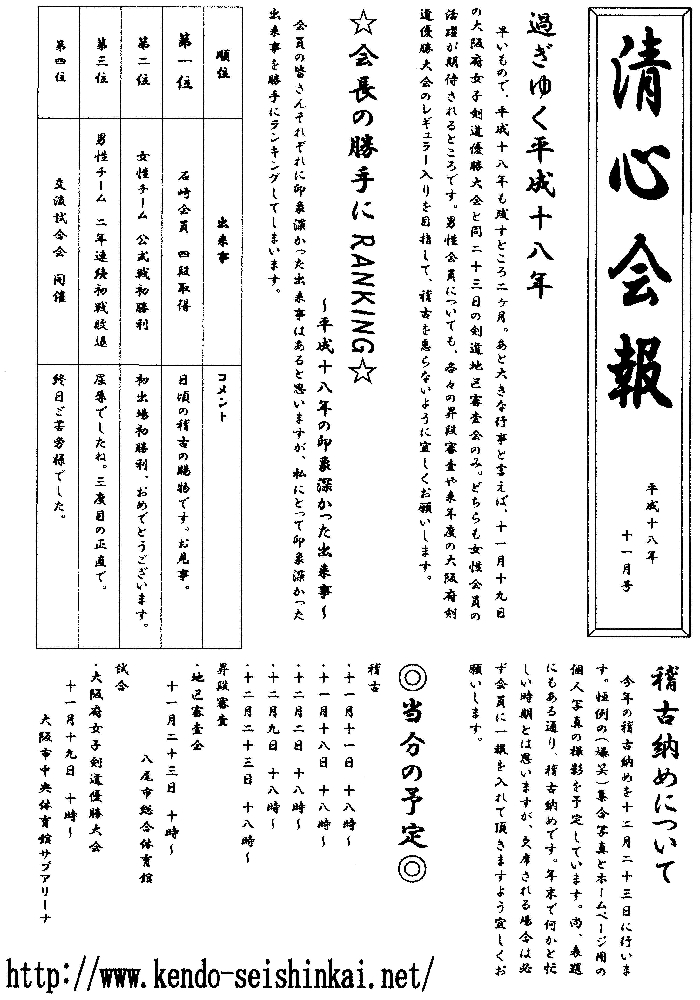 清心会報
平成十八年
十一月号
過ぎゆく平成十八年
早いもので、平成十八年も残すところ二ヶ月。あと大きな行事と言えば、十一月十九日
の大阪府女子剣道優勝大会と同二十三日の剣道地区審査会のみ。どちらも女性会員の
活躍が期待されるところです。男性会員についても、各々の昇段審査や来年度の大阪府剣
道優勝大会のレギュラー入りを目指して、稽古を怠らないように宜しくお願いします。
☆会長の勝手にRANKING☆
～平成十八年の印象深かった出来事～
会員の皆さんそれぞれに印象深かった出来事はあると思いますが、私にとって印象深かった
出来事を勝手にランキングしてしまいます。
順位 出来事 コメント
第一位 石崎会員 四段取得 日頃の稽古の賜物です。お見事。
第二位 女性チーム 公式戦初勝利 初出場初勝利、おめでとうございます。
第三位 男性チーム 二年連続初戦敗退 屈辱でしたね。三度目の正直で。
第四位 交流試合会 開催 終日ご苦労様でした。
稽古納めについて
今年の稽古納めを十二月二十三日に行いま
す。恒例の（爆笑）集合写真とホームページ用の
個人写真の撮影を予定しています。尚、表題
にもある通り、稽古納めです。年末で何かと忙
しい時期とは思いますが、欠席される場合は必
ず会員に一報を入れて頂きますよう宜しくお
願いします。
◎当分の予定◎
稽古
・十一月十一日 十八時～
・十一月十八日 十八時～
・十二月二日 十八時～
・十二月九日 十八時～
・十二月二十三日 十八時～
昇段審査
・地区審査会
十一月二十三日 十時～
八尾市総合体育館
試合
・大阪府女子剣道優勝大会
十一月十九日 十時～
大阪市中央体育館サブアリーナ
http://www.kendo-seishinkai.net/